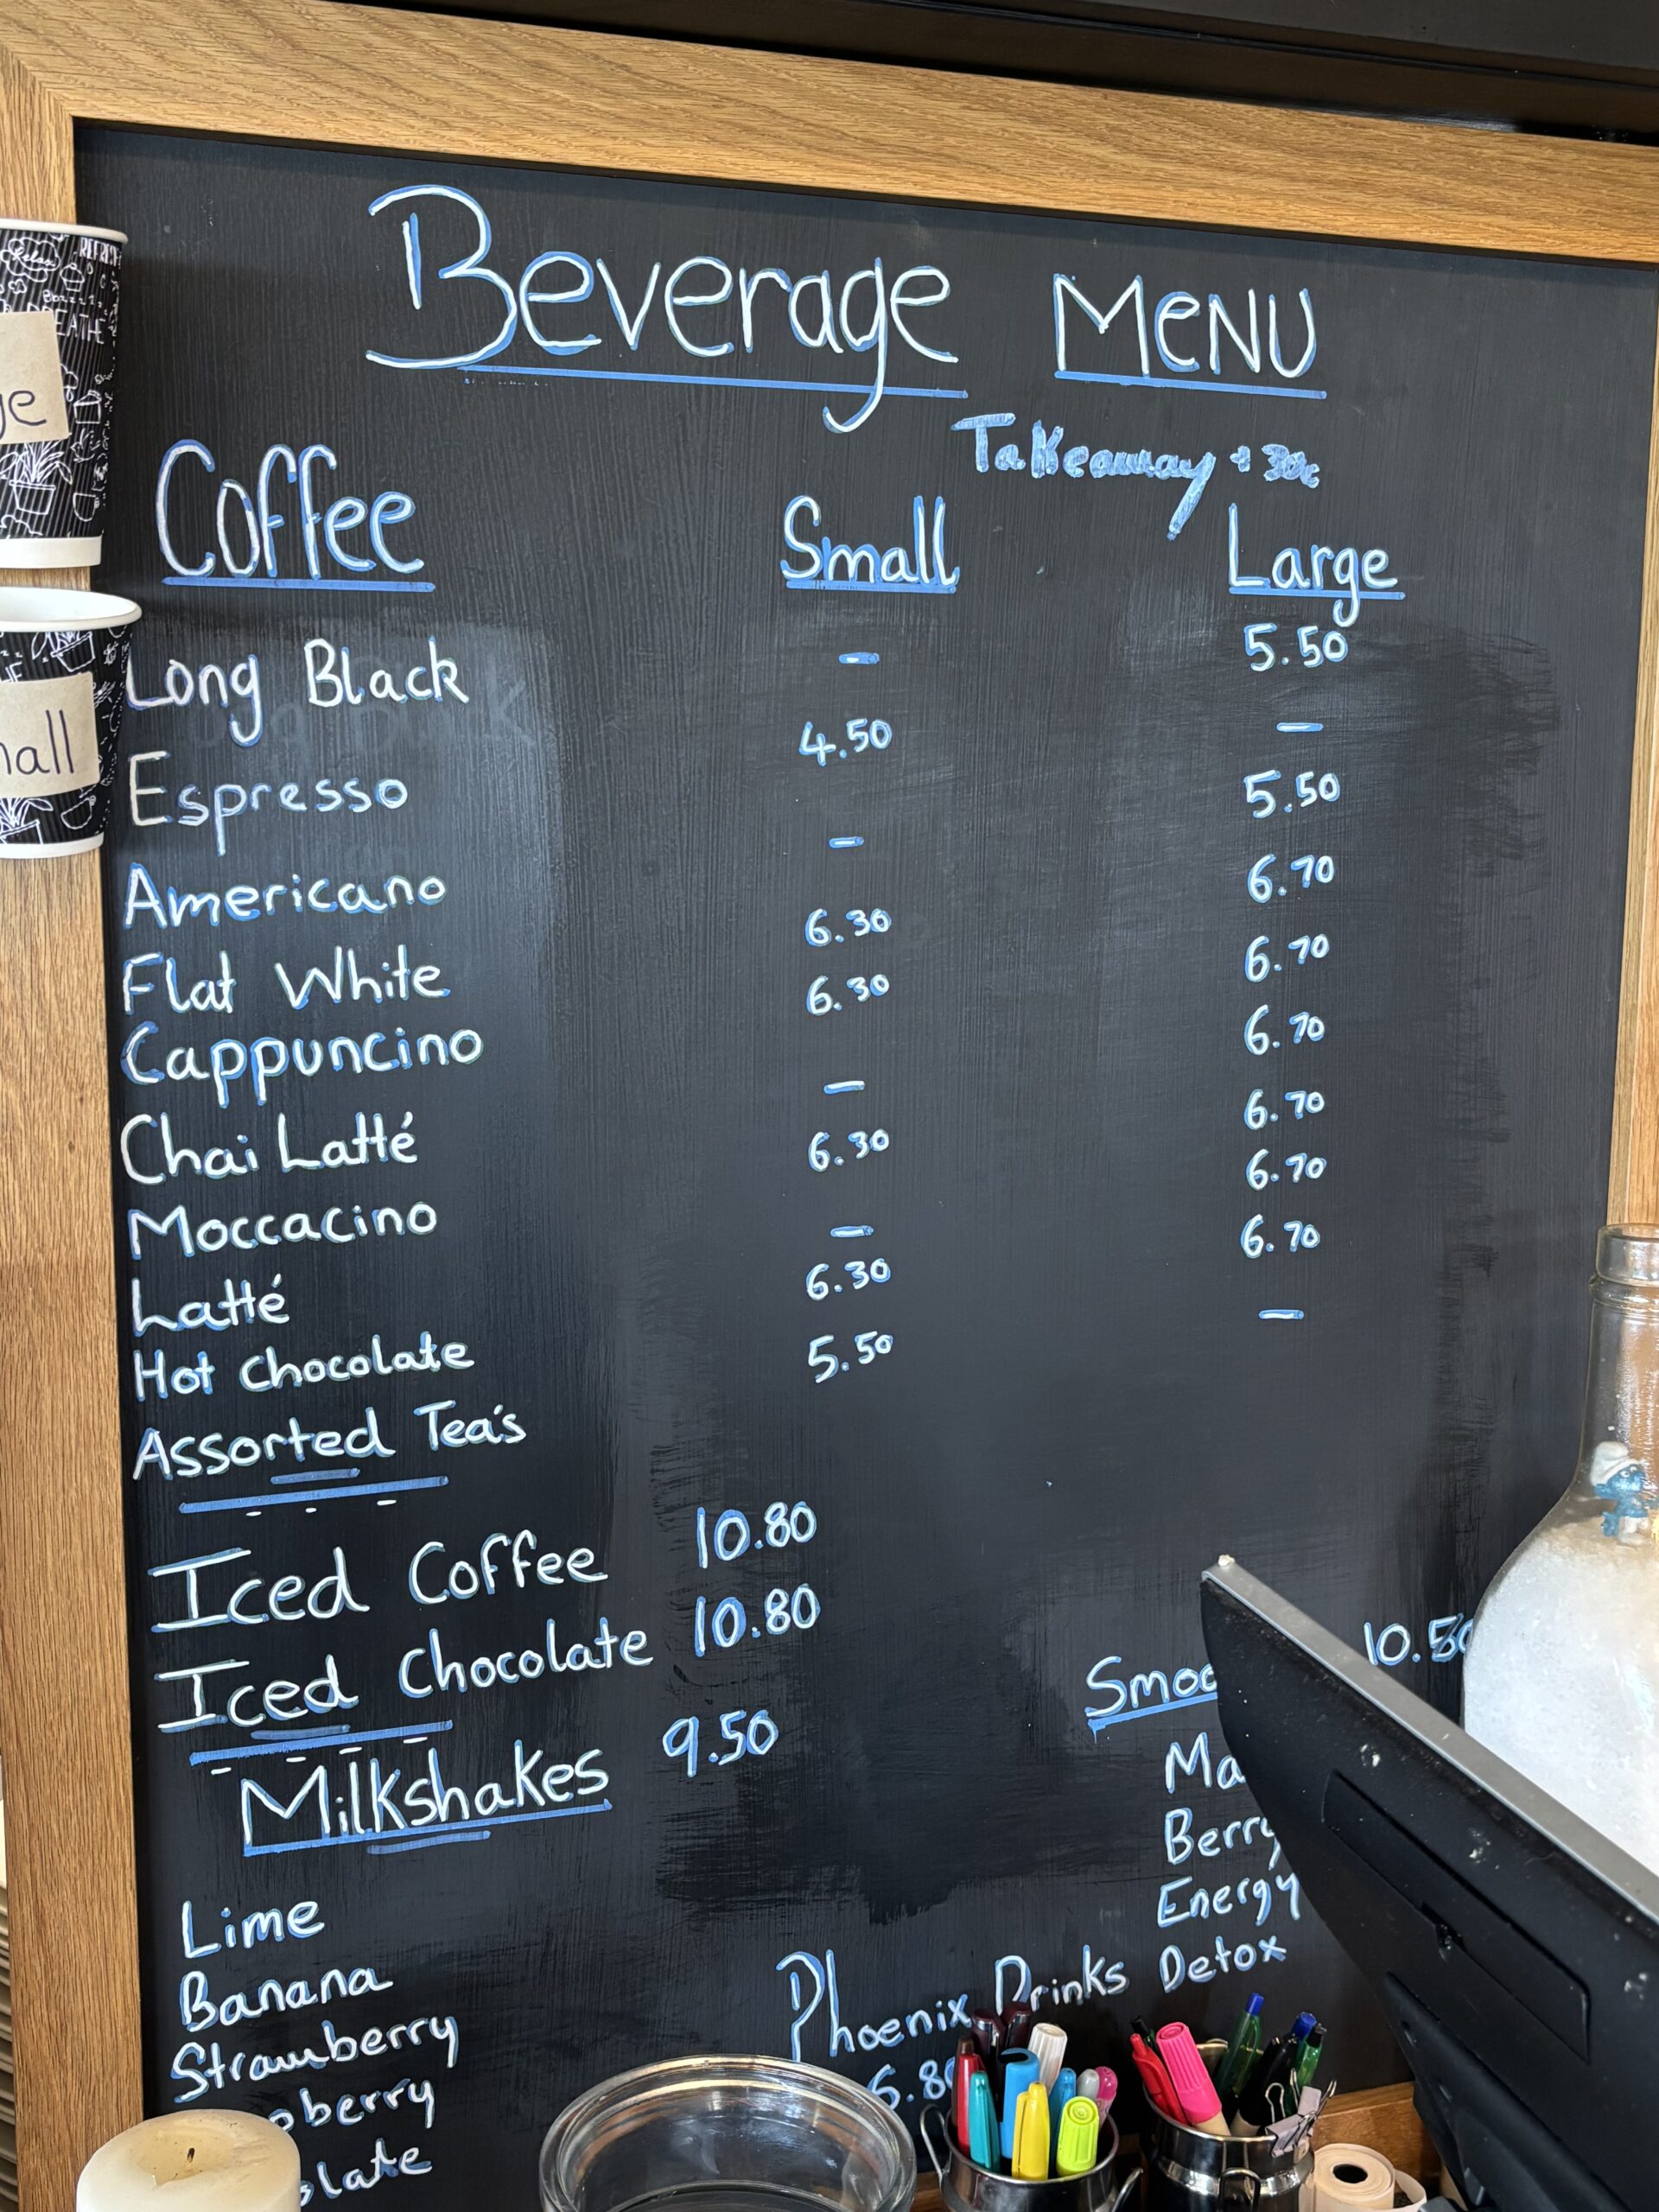 Beverage MeNU
Takeaway + 30c
Coffee Small Large
Long Black - 5.50
Espresso 4.50 -
Americano - 5.50
Flat White 6.30 6.70
Cappuncino 6.30 6.70
Chai Latté - 6.70
Moccacino 6.30 6.70
Latté - 6.70
Hot Chocolate 6.30 6.70
Assorted Tea's 5.50 -
Iced Coffee 10.80
Iced Chocolate 10.80
Milkshakes 9.50
Lime
Banana
Strawberry
Smoo 10.50
Ma
Berry
Energy
Detox
Phoenix Drinks
6.80